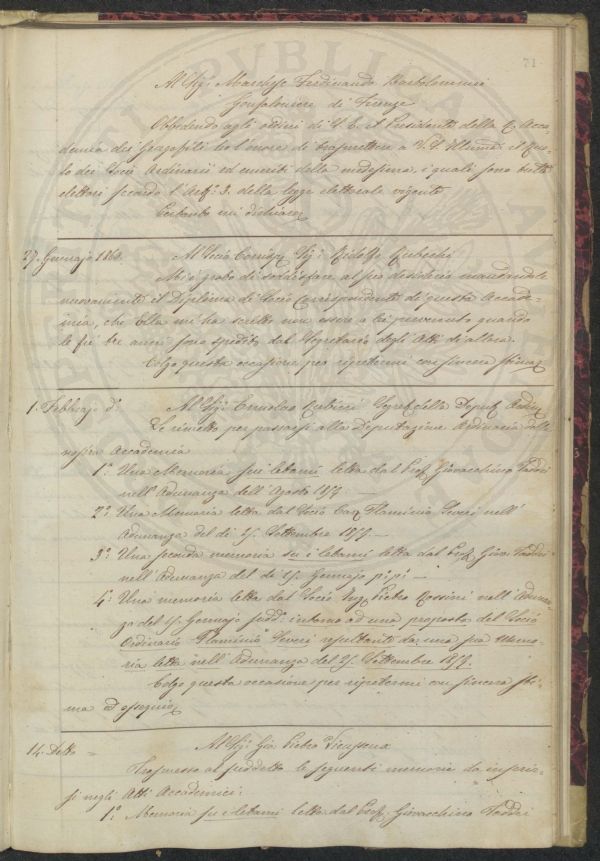 71
Al Sig. Marchese Ferdinando Bartolommei
Gonfaloniere di Firenze
Obbedendo agli ordini di V. E. il Presidente della R. Acca-
demia dei Georgofili ha l'onore di trasmettere a V. S. Illma il Ruo-
lo dei Socii Ordinarii ed emeriti della medesima, i quali sono tutti
elettori secondo l'Art. 3. della legge elettorale vigente
Pertanto mi dichiaro
27. Gennajo 1860. Al Socio Corrisp. Sig. Ridolfo
Mi è grato di soddisfare al suo desiderio mandandole
nuovamente il Diploma di Socio Corrispondente di questa Accade-
mia, che Ella mi ha scritto non essere a lei pervenuto quando
le fu tre anni sono spedito dal Segretario degli Atti di allora.
Colgo questa occasione per ripetermi con sincera stima
1. Febbrajo d.° Al Sig. Segret. della Deput. Ordin.
Le rimetto per passarsi alla Deputazione Ordinaria della
nostra Accademia
1.° Una Memoria sui letami letta dal Prof. Giovacchino Taddei
nell'Adunanza dell'Agosto 1859. —
2.° Una Memoria letta dal Socio Cav. Flaminio Severi nell'
Adunanza del dì 25. Settembre 1859. —
3.° Una seconda memoria su i letami letta dal Prof. Giov. Taddei
nell'Adunanza del dì 15. Gennajo p.° p.° —
4.° Una memoria letta dal Socio Ing. Pietro Rossini nell'Adunan-
za del 15. Gennajo sudd.° intorno ad una proposta del Socio
Ordinario Flaminio Severi resultante da una sua Memo-
ria letta nell'Adunanza del 25. Settembre 1859.
Colgo questa occasione per ripetermi con sincera sti-
ma ed ossequio
14. Detto Al Sig. Gio. Pietro Vieusseux
Trasmesse al suddetto le seguenti memorie da inserir-
si negli Atti Accademici:
1.° Memoria su i letami letta dal Prof. Giovacchino Taddei